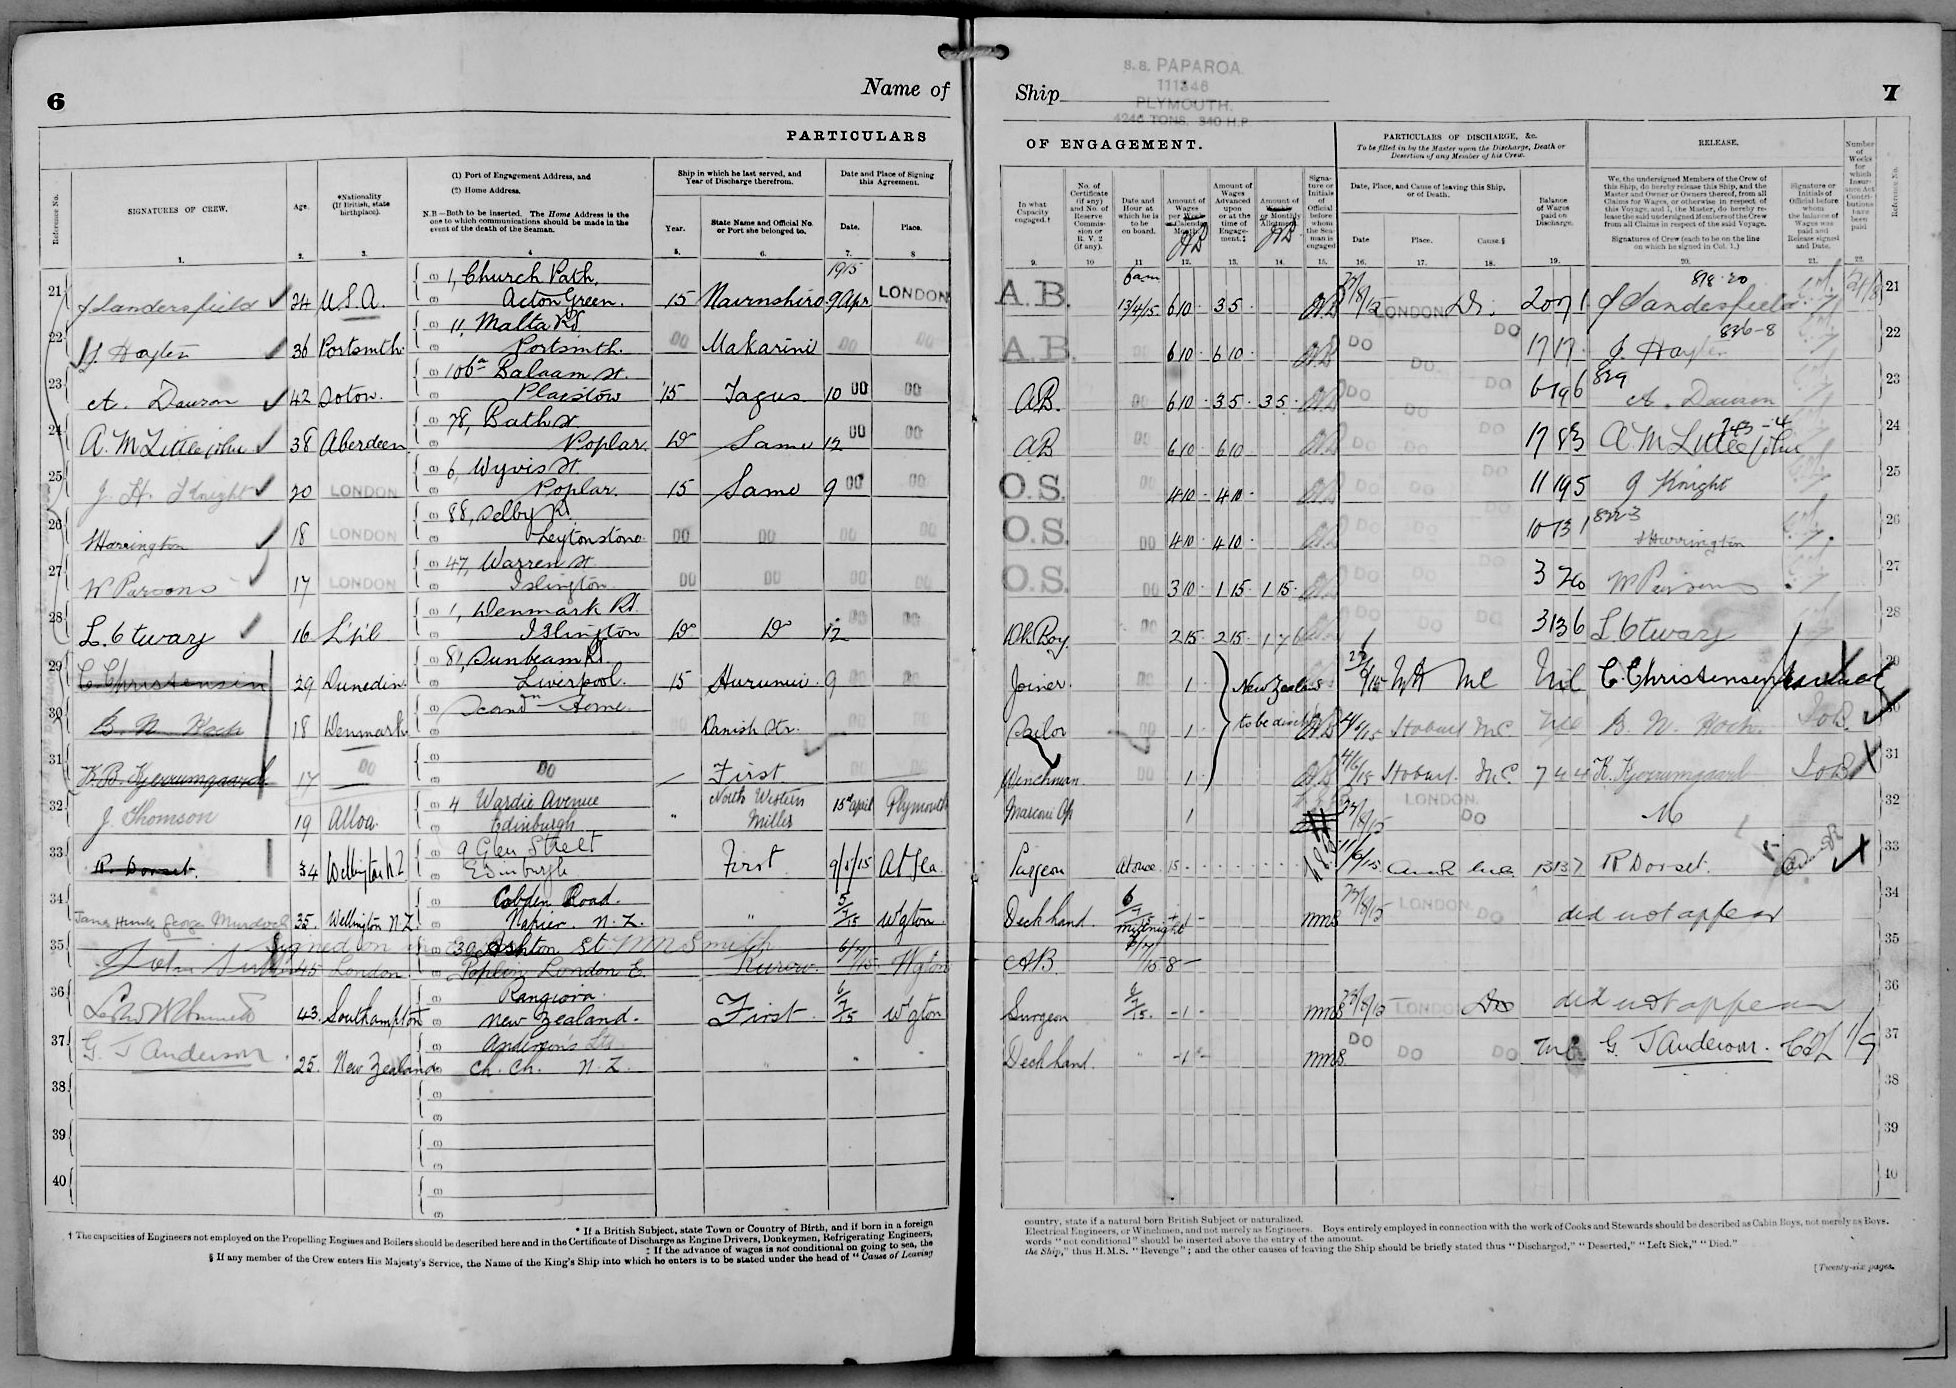 6
Name of
PARTICULARS
Reference No.
SIGNATURES OF CREW.
Age.
*Nationality (If British, state birthplace).
(1) Port of Engagement Address, and
(2) Home Address.
N.B—Both to be inserted. The Home Address is the one to which communications should be made in the event of the death of the Seaman.
Ship in which he last served, and Year of Discharge therefrom.
Year.
State Name and Official No. or Port she belonged to.
Date and Place of Signing this Agreement.
Date.
Place.
1. 2. 3. 4 5. 6. 7. 8
21 24 U.S.A. 1, Church Path, Acton Green. 15 Nairnshire 1915 9 Apr LONDON
22 J. Hayter 36 Portsmth. 11, Malta Rd Portsmth. DO Makarini DO DO
23 A. Dawson 42 Soton. 106a Balaam St. Plaistow 15 Tagus 10 DO DO
24 A. M Littlejohn 38 Aberdeen 78, Bath St Poplar. Do Same 12 DO DO
25 J. H. Knight 20 LONDON 6, Wyvis St. Poplar. 15 Same 9 DO DO
26 Harrington 18 LONDON 88, Selby Rd. Leytonstone DO DO DO DO
27 W Parsons 17 LONDON 47, Warren St Islington. DO DO DO DO
28 L. Otway 16 L'pl 1, Denmark Rd Islington Do Do 12 DO DO
29 C. Christensen 29 Dunedin. 81, Sunbeam Rd. Liverpool. 15 Hurunui 9
30 B. N. Koch 18 Denmark Scandn Home. Danish Str.
31 17 DO DO First
32 J. Thomson 19 Alloa. 4 Wardie Avenue Edinburgh " North Western Miller 15th april Plymouth
33 R. Dorset. 34 Wellington N.Z 9 Glen Street Edinburgh First 9/5/15 At Sea.
34 James Hunter George Murdoch 35. Wellington N.Z. Cobden Road. Napier. N.Z. " 5/7/15 W'gton.
35 Signed on 45 London 30 Ashton St M M Smith Poplar London E. Kurow. 6/7/15. W'gton
36 43. Southampton Rangiora. New Zealand. First. 6/7/15 W'gton
37 G. J Anderson. 25. New Zealand Anderson's Ltd Ch. Ch. N.Z. " " "
38
39
40
* If a British Subject, state Town or Country of Birth, and if born in a foreign
† The capacities of Engineers not employed on the Propelling Engines and Boilers should be described here and in the Certificate of Discharge as Engine Drivers, Donkeymen, Refrigerating Engineers,
‡ If the advance of wages is not conditional on going to sea, the
§ If any member of the Crew enters His Majesty's Service, the Name of the King's Ship into which he enters is to be stated under the head of "Cause of Leaving
Ship
S. S. PAPAROA.
111346
PLYMOUTH.
4246 TONS. 540 H.P
7
OF ENGAGEMENT.
PARTICULARS OF DISCHARGE, &c.
To be filled in by the Master upon the Discharge, Death or Desertion of any Member of his Crew.
RELEASE.
Number of Weeks for which Insurance Act Contributions have been paid
Reference No.
In what Capacity engaged.†
No. of Certificate (if any) and No. of Reserve Commission or R. V. 2 (if any).
Date and Hour at which he is to be on board.
Amount of Wages per Week or Calendar Month.
Amount of Wages Advanced upon or at the time of Engagement.‡
Amount of Weekly or Monthly Allotment.
Signature or Initials of Official before whom the Seaman is engaged
Date, Place, and Cause of leaving this Ship, or of Death.
Date
Place.
Cause.§
Balance of Wages paid on Discharge.
We, the undersigned Members of the Crew of this Ship, do hereby release this Ship, and the Master and Owner or Owners thereof, from all Claims for Wages, or otherwise in respect of this Voyage, and I, the Master, do hereby release the said undersigned Members of the Crew from all Claims in respect of the said Voyage.
Signatures of Crew (each to be on the line on which he signed in Col. 1.)
Signature or Initials of Official before whom the balance of Wages was paid and Release signed and Date.
9. 10 11 12. 13. 14. 15. 16. 17. 18. 19. 20. 21. 22.
A.B. 6am 13/4/15. 6 10 . 3 5 . LONDON Di. 818-20 21
A.B. DO 6 10 . 6 10 . DO DO DO 17 17 . 836-8 J. Hayter 22
AB. DO 6 10 . 3 5 . 3 5 . DO DO DO 829 A. Dawson 23
AB DO 6 10 6 10 DO DO DO 17 83 A. M Littlejohn 24
O.S. DO 4 10 . 4 10 . DO DO DO 11 19 5 J Knight 25
O.S. DO 4 10 . 4 10 . DO DO DO 26
O.S. DO 3 10 . 1 15 . 1 15 . DO DO DO W Parsons 27
Dk Boy. DO 2 15 . 2 15 . 1 7 6 DO DO DO 3 13 6 L Otway 28
Joiner. DO 1 . New Zealand mc Nil C. Christensen 29
Sailor DO 1 . to be disch Hobart mc B. N. Koch. 30
Winchman. DO 1 . 4/6/15 Hobart. mc 7 4 4 31
Marconi Op 1 LONDON. DO M 32
Surgeon At once 1s. 11/9/15 13 13 7 R Dorset. 33
Deck hand. 6/7/15 midnight -1- mms LONDON DO did not appear 34
AB 7/7/15 8 — 35
Surgeon 6/7/15. -1- mms LONDON Do did not appear 36
Deck hand. " -1- mms. DO DO DO G. J Anderson. 1/9 37
38
39
40
country, state if a natural born British Subject or naturalized.
Electrical Engineers, or Winchmen, and not merely as Engineers. Boys entirely employed in connection with the work of Cooks and Stewards should be described as Cabin Boys, not merely as Boys.
words "not conditional" should be inserted above the entry of the amount.
the Ship," thus H.M.S. "Revenge"; and the other causes of leaving the Ship should be briefly stated thus "Discharged," "Deserted," "Left Sick," "Died."
[Twenty-six pages.